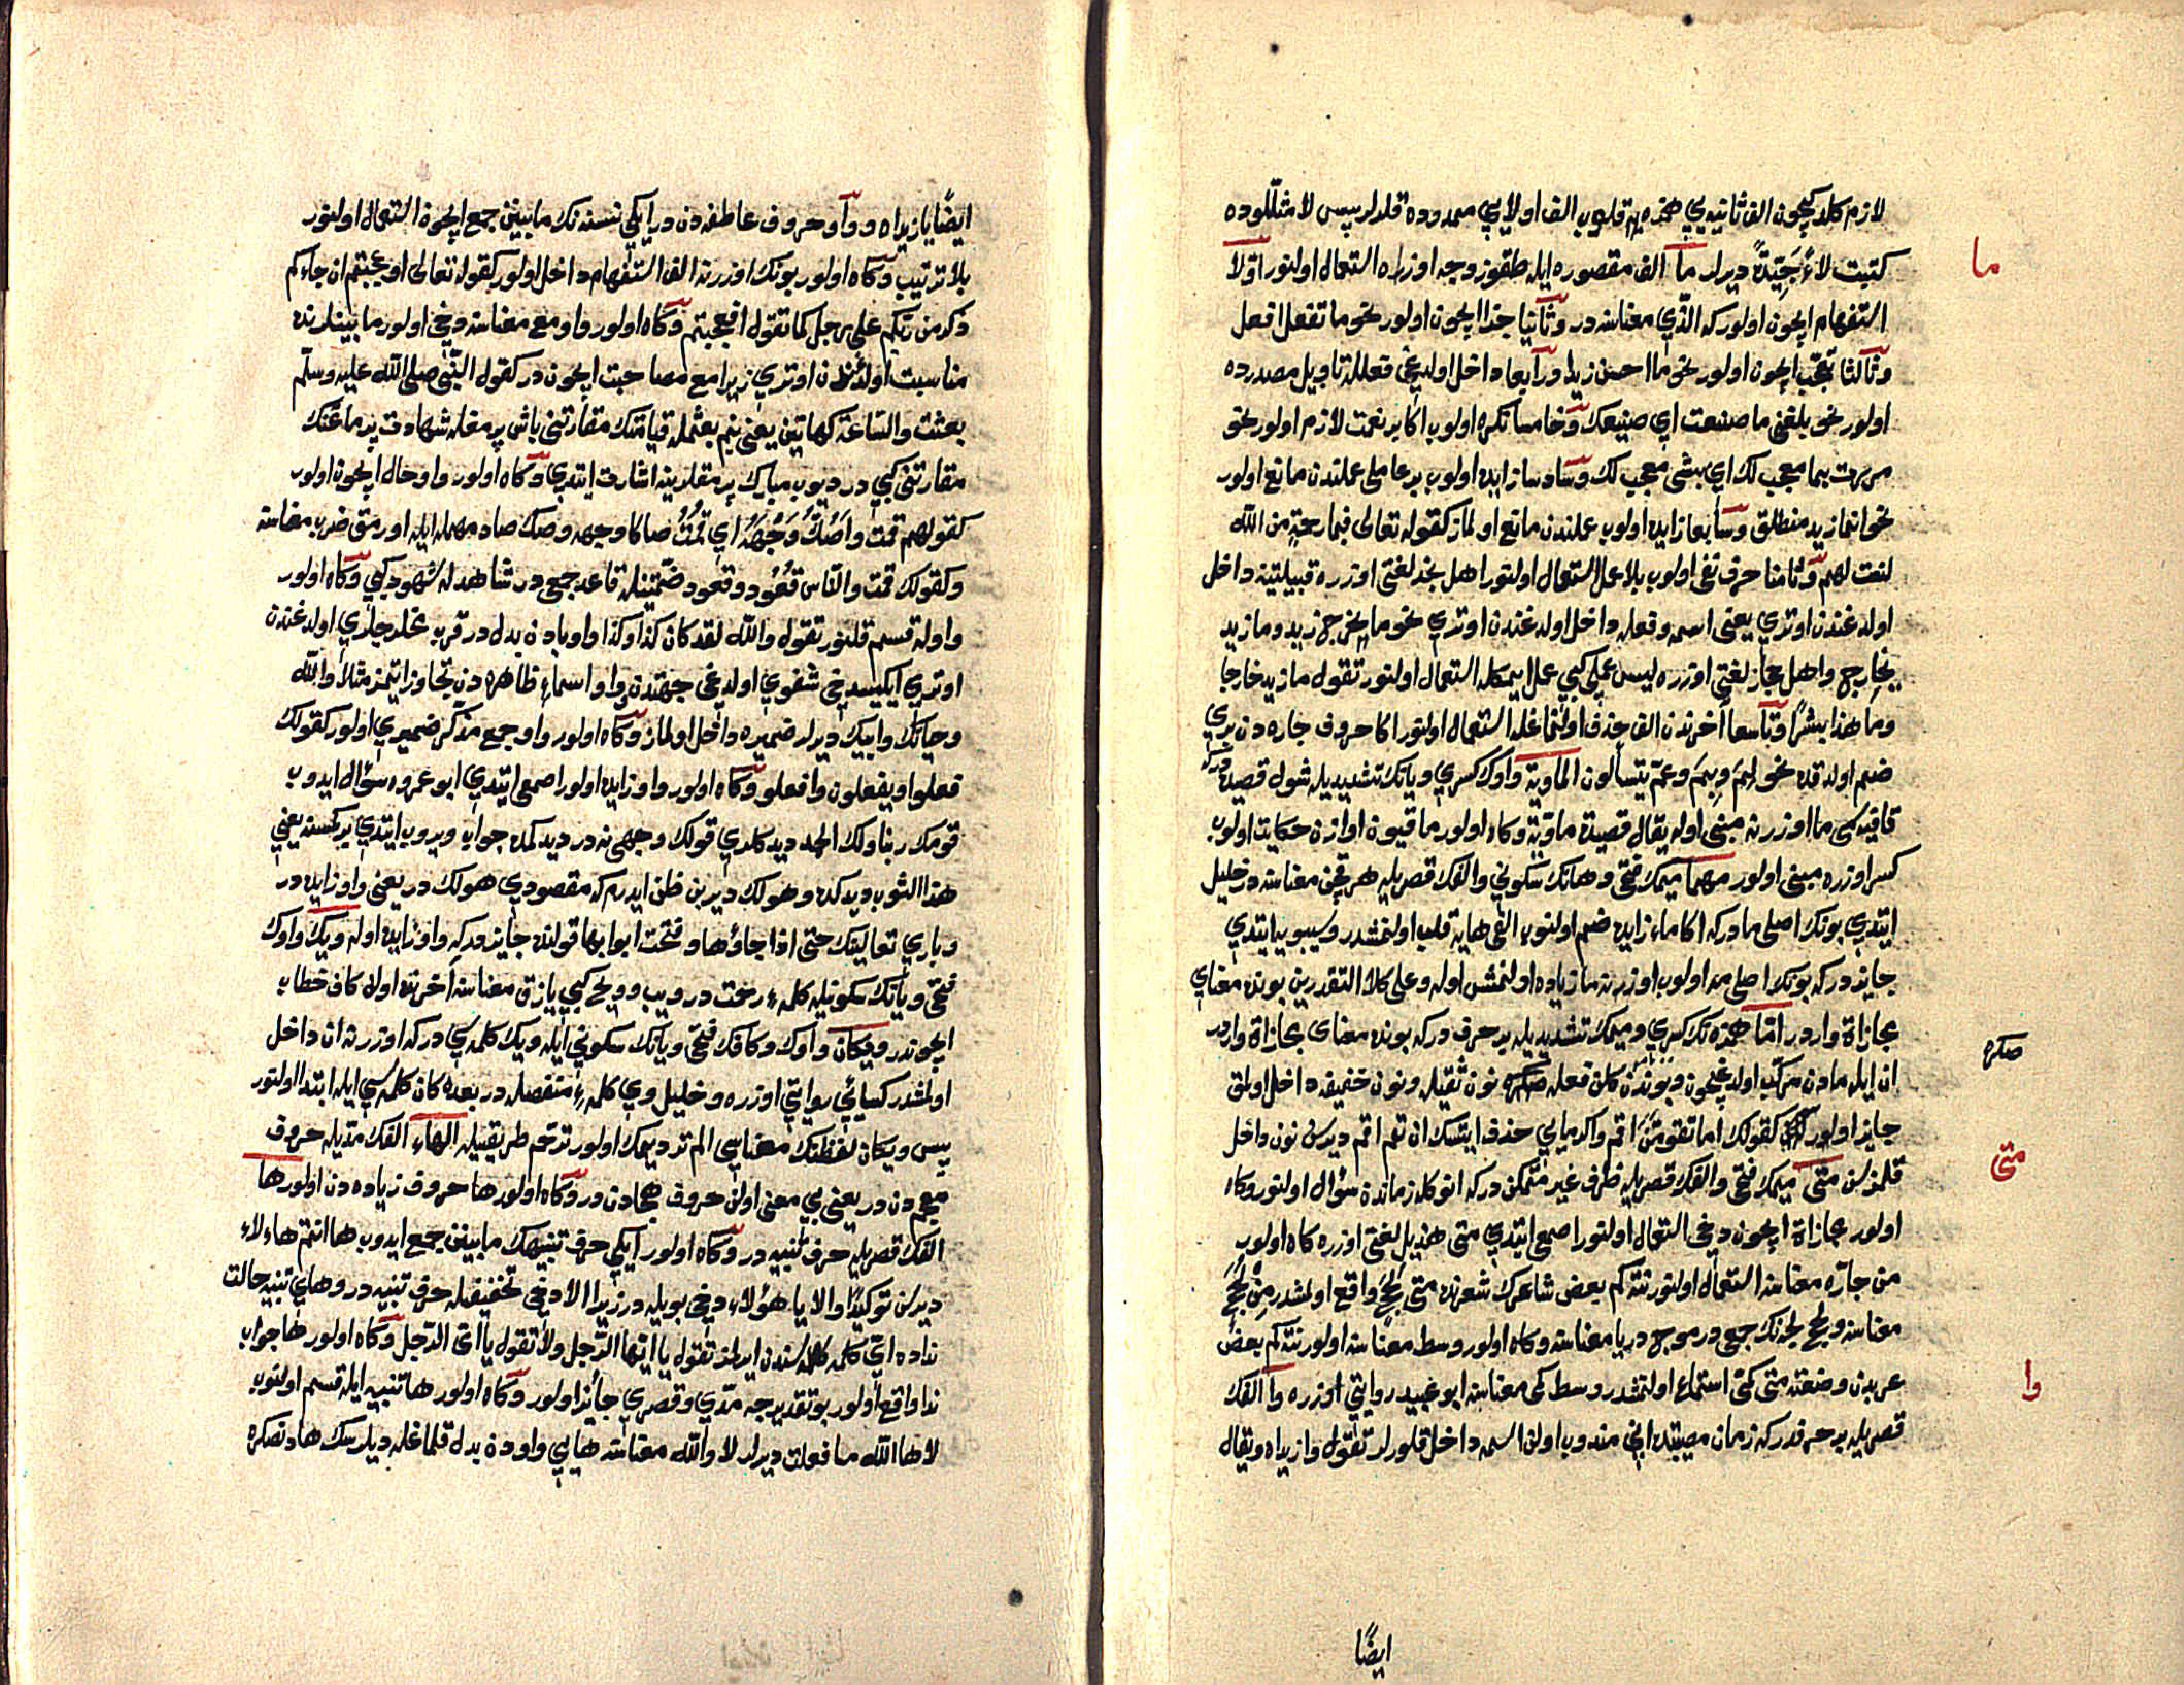 لازم كلدكيچون الف ثانيه يي همزه يه قلوب الف اولايي ممدوده قلدلر پس لا مثللوده
كتبت لاءً جَيِّدَةً ديرلر ما الف مقصوره ايله طقوز وجه اوزره استعمال اولنور اوّلا
ما
استفهام ايچون اولور كه الّذي معناسنه در وثانيا جزا ايچون اولور نحو ما تفعل افعل
وثالثا تعجّب ايچون اولور نحو ما احسن زيدا ورابعا داخل اولديغي فعلله تاويل مصدرده
اولور نحو بلغني ما صنعت اي صنيعك وخامسا نكره اولوب اكا بر نعت لازم اولور نحو
مررت بما معجب لك اي بشئ معجب لك وسادسا زايده اولوب بر عاملي عملندن مانع اولور
نحو انما زيد منطلق وسابعا زايده اولوب عملندن مانع اولماز كقوله تعالى فبما رحمةٍ من الله
لنت لهم وثامنا حرف نفى اولوب بلا عمل استعمال اولنور اهل نجد لغتي اوزره قبيلتينه داخل
اولدغندن اوتري يعني اسمه وفعله داخل اولدغندن اوتري نحو ما يخرج زيد وما زيد
بخارج واهل حجاز لغتي اوزره ليس عملي كبي عمل ايتمكله استعمال اولنور تقول ما زيد خارجا
وما هذا بشرًا وتاسعا آخرندن الف حذف اولنماغله استعمال اولنور اكا حروف جاره دن بري
ضم اولدقده نحو لِمَ وبِمَ وعمّ يتسألون الماويّة واوك كسري ويانك تشديديله شول قصيده دركه
قافيه سى ما اوزرنه مبنى اوله يقال قصيدة ماويّة وكاه اولور ما قيون اوازن حكايت اولوب
كسر اوزره مبنى اولور مهما ميمك فتحي وهانك سكوني والفك قصريله هر قچن معناسنه در خليل
ايتدي بونك اصلي ما دركه اكا ماء زايده ضم اولنوب الفي هايه قلب اولنمشدر وسيبويه ايتدي
جايزدركه بونك اصلي مه اولوب اوزرنه ما زياده اولنمش اوله وعلى كلا التقديرين بونده معناي
مجازاة واردر امّا همزه نك كسري وميمك تشديديله بر حرف دركه بونده معناى مجازاة واردر
ان ايله مادن مركّب اولدغيچون وبوندن كلن فعله نون ثقيله ونون خفيفه داخل اولق
صكره
جايز اولور كقولك اما تقومنّ اقم واكر مايي حذف ايتسك ان تقم اقم ديرسن نون داخل
قلمزسن متى ميمك فتحي والفك قصريله ظرف غير متمكن دركه انوكله زماندن سؤال اولنور وكاه
متى
اولور مجازاة ايچون دخي استعمال اولنور اصمعي ايتدي متى هذيل لغتي اوزره كاه اولوب
من جارّه معناسنه استعمال اولنور نته كم بعض شاعرك شعرنده متى لُجَجٍ واقع اولمشدر مِنْ لُجَجٍ
معناسنه ولجج لجه نك جمعيدر موج دريا معناسنه وكاه اولور وسط معناسنه اولور نته كم بعض
عربدن وضعته متى كمّي استماع اولنمشدر وسط كمى معناسنه ابو عبيد روايتي اوزره وا الفك
وا
قصريله بر حرفدركه زمان مصيبتده انى مندوب اولن اسمه داخل قلورلر تقول وا زيداه ويقال
ايضًا
ايضًا يا زيداه و واو حروف عاطفه دن در ايكي نسنه نك مابينين جمع ايچون استعمال اولنور
بلا ترتيب وكاه اولور بونك اوزرنه الف استفهام داخل اولور كقوله تعالى اوعجبتم ان جاءكم
ذكر من ربّكم على رجل كما تقول افعجبتم وكاه اولور واو مع معناسنه دخي اولور مابينلرنده
مناسبت اولدغندن اوتري زيرا مع مصاحبت ايچون در كقول النّبيّ صلى الله عليه وسلّم
بعثت والسّاعة كهاتين يعني بنم بعثمله قيامتك مقارنتي باش برمغله شهادت برماغنك
مقارنتي كبي در ديوب مبارك برمقلرينه اشارت ايتدي وكاه اولور واو حال ايچون اولور
كقولهم قمت واَصُكُّ وَجْهَهُ اي قُمْتُ صاكا وجهه وصك صاد مهمله ايله اورمق ضرب معناسنه
وكقولك قمت والنّاس قُعُود وقعود ضمّتينله قاعد جمعيدر شاهدله شهود كبي وكاه اولور
واوله قسم قلنور تقول والله لقد كان كذا وكذا واو بادن بدل در قرب مخلري اولدغندن
اوتري ايكيسيدخى شفوي اولدغى جهتدن واو اسماء ظاهره دن تجاوز ايتمز مثلا والله
وحياتك وابيك ديرلر ضميره داخل اولماز وكاه اولور واو جمع مذكّر ضميري اولور كقولك
فعلوا ويفعلون وافعلوا وكاه اولور واو زايده اولور اصمعي ايتدي ابو عمروه سؤال ايدوب
قومك ربنا ولك الحمد ديدكلري قولك وجهي نه در ديدكمده جواب ويروب ايتدي بر كمسنه بعني
هذا الثوب ديدكده وهو لك دير بن ظن ايدرم كه مقصودي هو لك در يعنى واو زايده در
وباري تعالينك حتى اذا جاؤها وفتحت ابوابها قولنده جايزدركه واو زايده اوله ويك واوك
فتحي ويانك سكونيله كلمهء رحمت در ويب وويح كبي يازق معناسنه آخرنده اولان كاف خطاب
ايچوندر ويكان واوك وكافك فتحي ويانك سكوني ايله ويك كلمه سي دركه اوزرنه ان داخل
اولمشدر كسائي روايتي اوزره وخليل وي كلمهءِ منفصله در بعده كان كلمه سي ايله ابتدا اولنور
پس ويكان لفظنك معناسي الم تر ديمك اولور ترحّم طريقيله الهاء الفك مدّيله حروف
معجم دن در يعني بي معنى اولن حروف هجادن در وكاه اولور ها حروف زياده دن اولور ها
الفك قصريله حرف تنبيه در وكاه اولور ايكي حرف تنبيهك مابينين جمع ايدوب ها انتم هاءلاء
ديرلر توكيدًا والا يا هؤلاء دخي بويله در زيرا الا دخي تخفيفله حرف تنبيه در وهاي تنبيه حالت
نداده ايّ كلمه سندن ايرلمز تقول يا ايّها الرّجل ولا تقول يا اىّ الرّجل وكاه اولور ها جواب
ندا واقع اولور بو تقديرجه مدّي وقصري جائز اولور وكاه اولور ها تنبيه ايله قسم اولنوب
لا ها الله ما فعلت ديرلر لا والله معناسنه هايي واودن بدل قلماغله ديلرسك هادنصكره